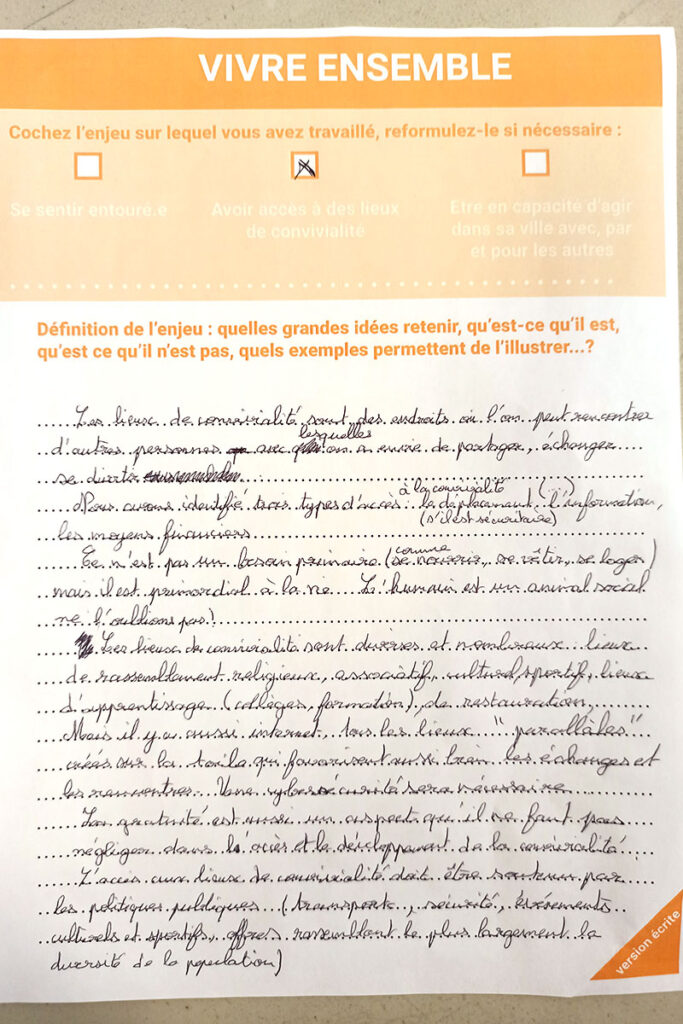 VIVRE ENSEMBLE
Cochez l'enjeu sur lequel vous avez travaillé, reformulez-le si nécessaire :
Se sentir entouré.e
Avoir accès à des lieux
de convivialité
Etre en capacité d'agir
dans sa ville avec, par
et pour les autres
Définition de l'enjeu : quelles grandes idées retenir, qu'est-ce qu'il est,
qu'est ce qu'il n'est pas, quels exemples permettent de l'illustrer...?
Les lieux de convivialité sont des endroits où l'on peut rencontrer
lesquelles
d'autres personnes avec on a envie de partager, échanger
se divertir
à la convivialité (...)
Nous avons identifié trois types d'accès : le déplacement, l'information,
(s'il est sécuritaire)
les moyens financiers
comme
Ce n'est pas un besoin primaire (se nourrir, se vêtir, se loger)
mais il est primordial à la vie. L'humain est un animal social
ne l'oublions pas!
Les lieux de convivialité sont diverses et nombreux : lieux
de rassemblement religieux, associatif, culturel, sportif, lieux
d'apprentissage (collèges, formation), de restauration,
Mais il y a aussi internet, tous les lieux "parallèles"
créés sur la toile qui favorisent aussi bien les échanges et
les rencontres. Une cybersécurité sera nécessaire
La gratuité est aussi un aspect qu'il ne faut pas
négliger dans l'accès et le développement de la convivialité.
L'accès aux lieux de convivialité doit être soutenu par
les politiques publiques (transports, sécurité, événements
culturels et sportifs, offres rassemblant le plus largement la
diversité de la population)
version écrite